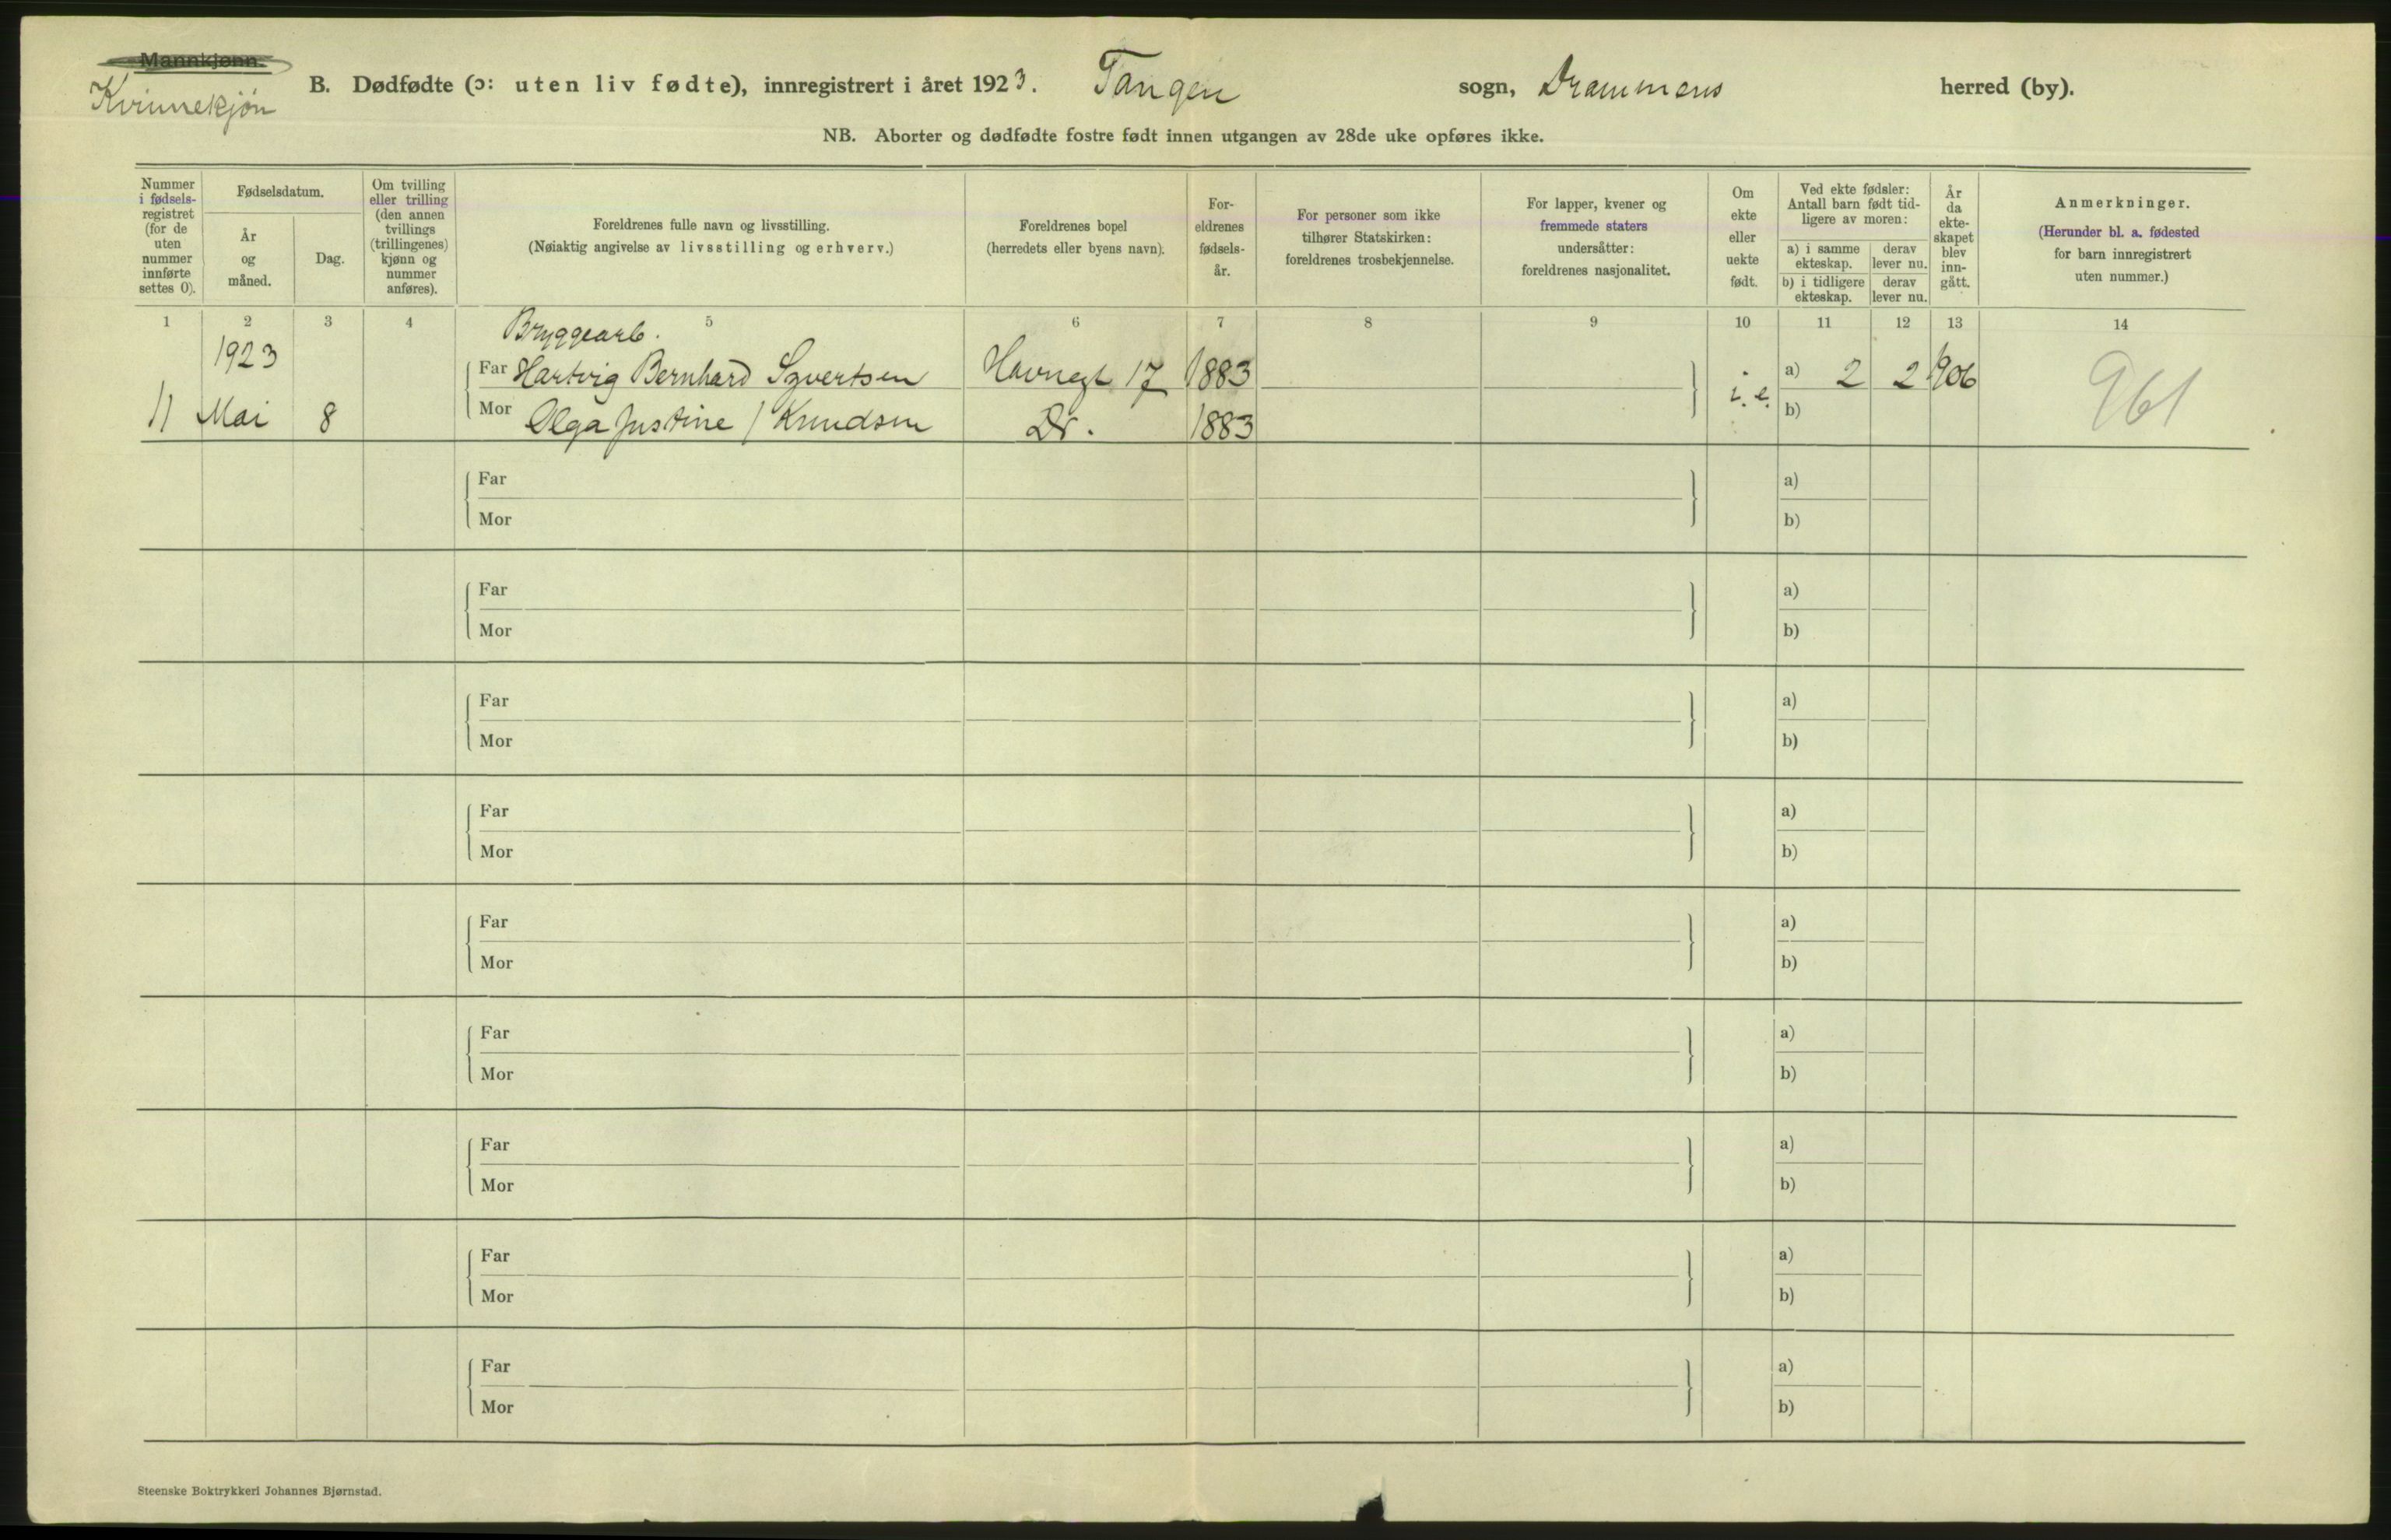 Mannkjønn.
Kvinnekjøn
B. Dødfødte (ɔ: uten liv fødte), innregistrert i året 1923. Tangen sogn, Drammens herred (by).
NB. Aborter og dødfødte fostre født innen utgangen av 28de uke opføres ikke.
Nummer i fødsels-registret (for de uten nummer innførte settes 0).
Fødselsdatum.
År og måned.
Dag.
Om tvilling eller trilling (den annen tvillings (trillingenes) kjønn og nummer anføres).
Foreldrenes fulle navn og livsstilling.
(Nøiaktig angivelse av livsstilling og erhverv.)
Foreldrenes bopel
(herredets eller byens navn).
For-eldrenes fødsels-år.
For personer som ikke tilhører Statskirken: foreldrenes trosbekjennelse.
For lapper, kvener og fremmede staters undersåtter: foreldrenes nasjonalitet.
Om ekte eller uekte født.
Ved ekte fødsler: Antall barn født tid-ligere av moren:
a) i samme ekteskap.
derav lever nu.
b) i tidligere ekteskap.
derav lever nu.
År da ekte-skapet blev inn-gått.
Anmerkninger.
(Herunder bl. a. fødested for barn innregistrert uten nummer.)
1 2 3 4 5 6 7 8 9 10 11 12 13 14
1923 Bryggearb.
Far Hartvig Bernhard Syvertsen Havnegt 17 1883 a) 2 2 1906
11 Mai 8 Mor Olga Justine / Knudsen Dr. 1883 i. e. b) 961
Far a)
Mor b)
Far a)
Mor b)
Far a)
Mor b)
Far a)
Mor b)
Far a)
Mor b)
Far a)
Mor b)
Far a)
Mor b)
Far a)
Mor b)
Far a)
Mor b)
Steenske Boktrykkeri Johannes Bjørnstad.